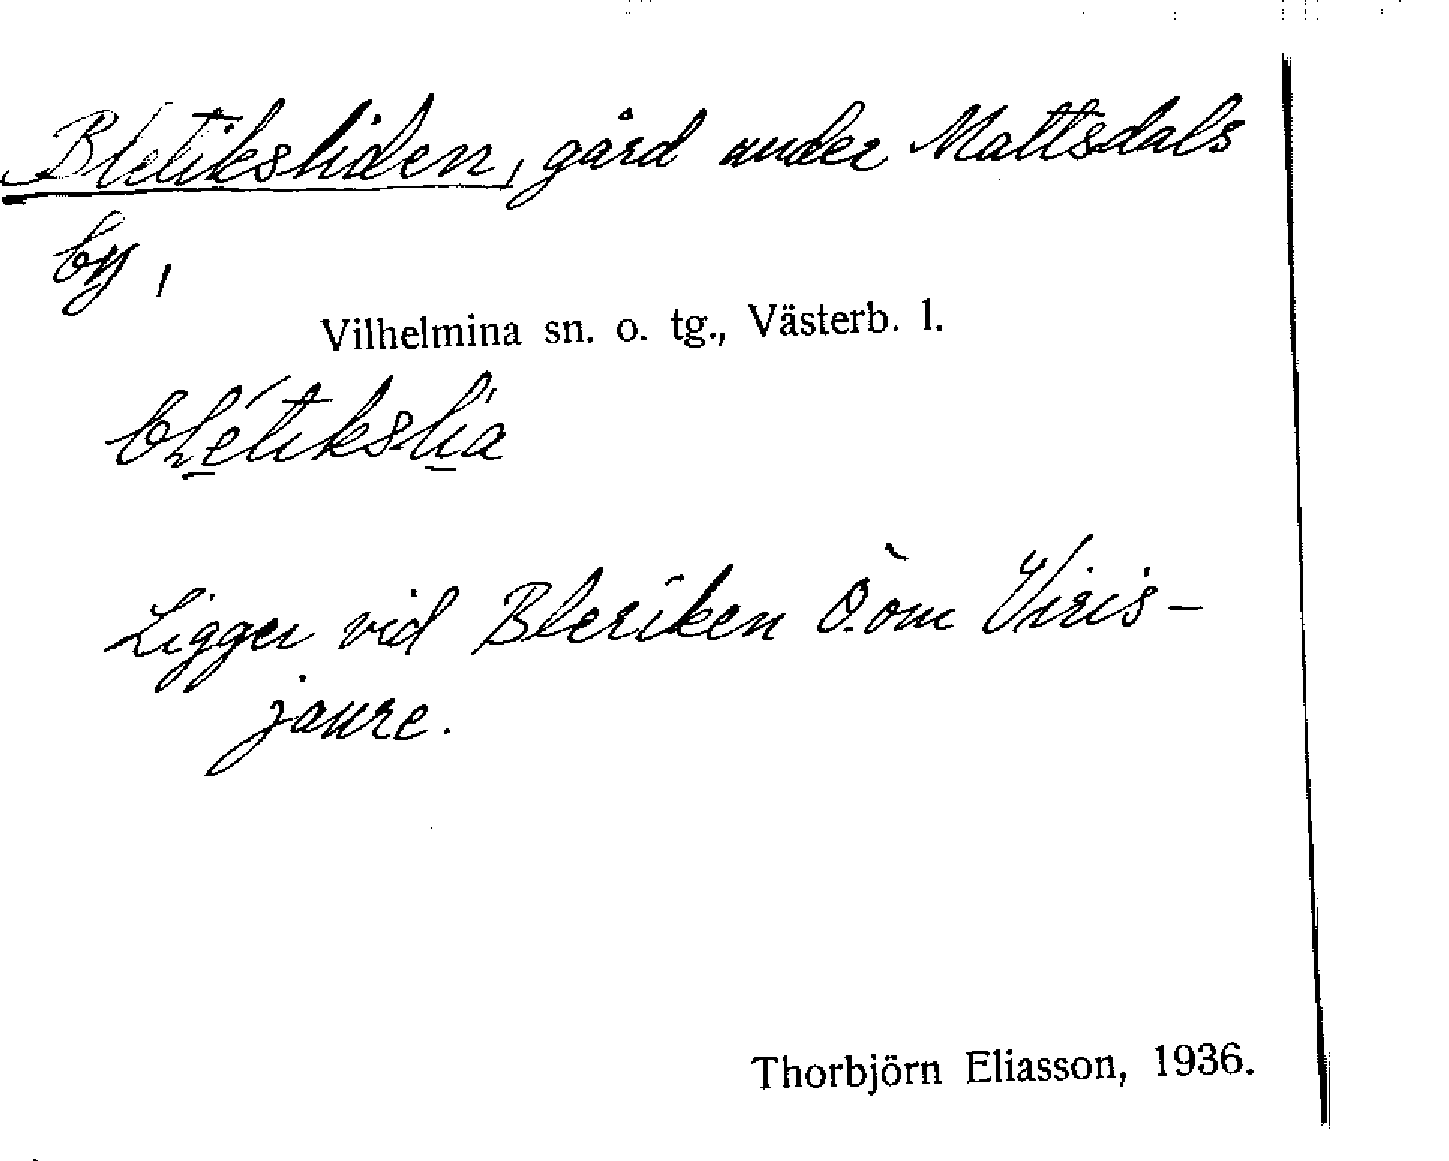 Bletiksliden, gård under Mattsdals
by,
Vilhelmina sn. o. tg., Västerb. l.
blétikslìa
Ligger vid Bleriken Ö. om Viris-
jaure.
Thorbjörn Eliasson, 1936.